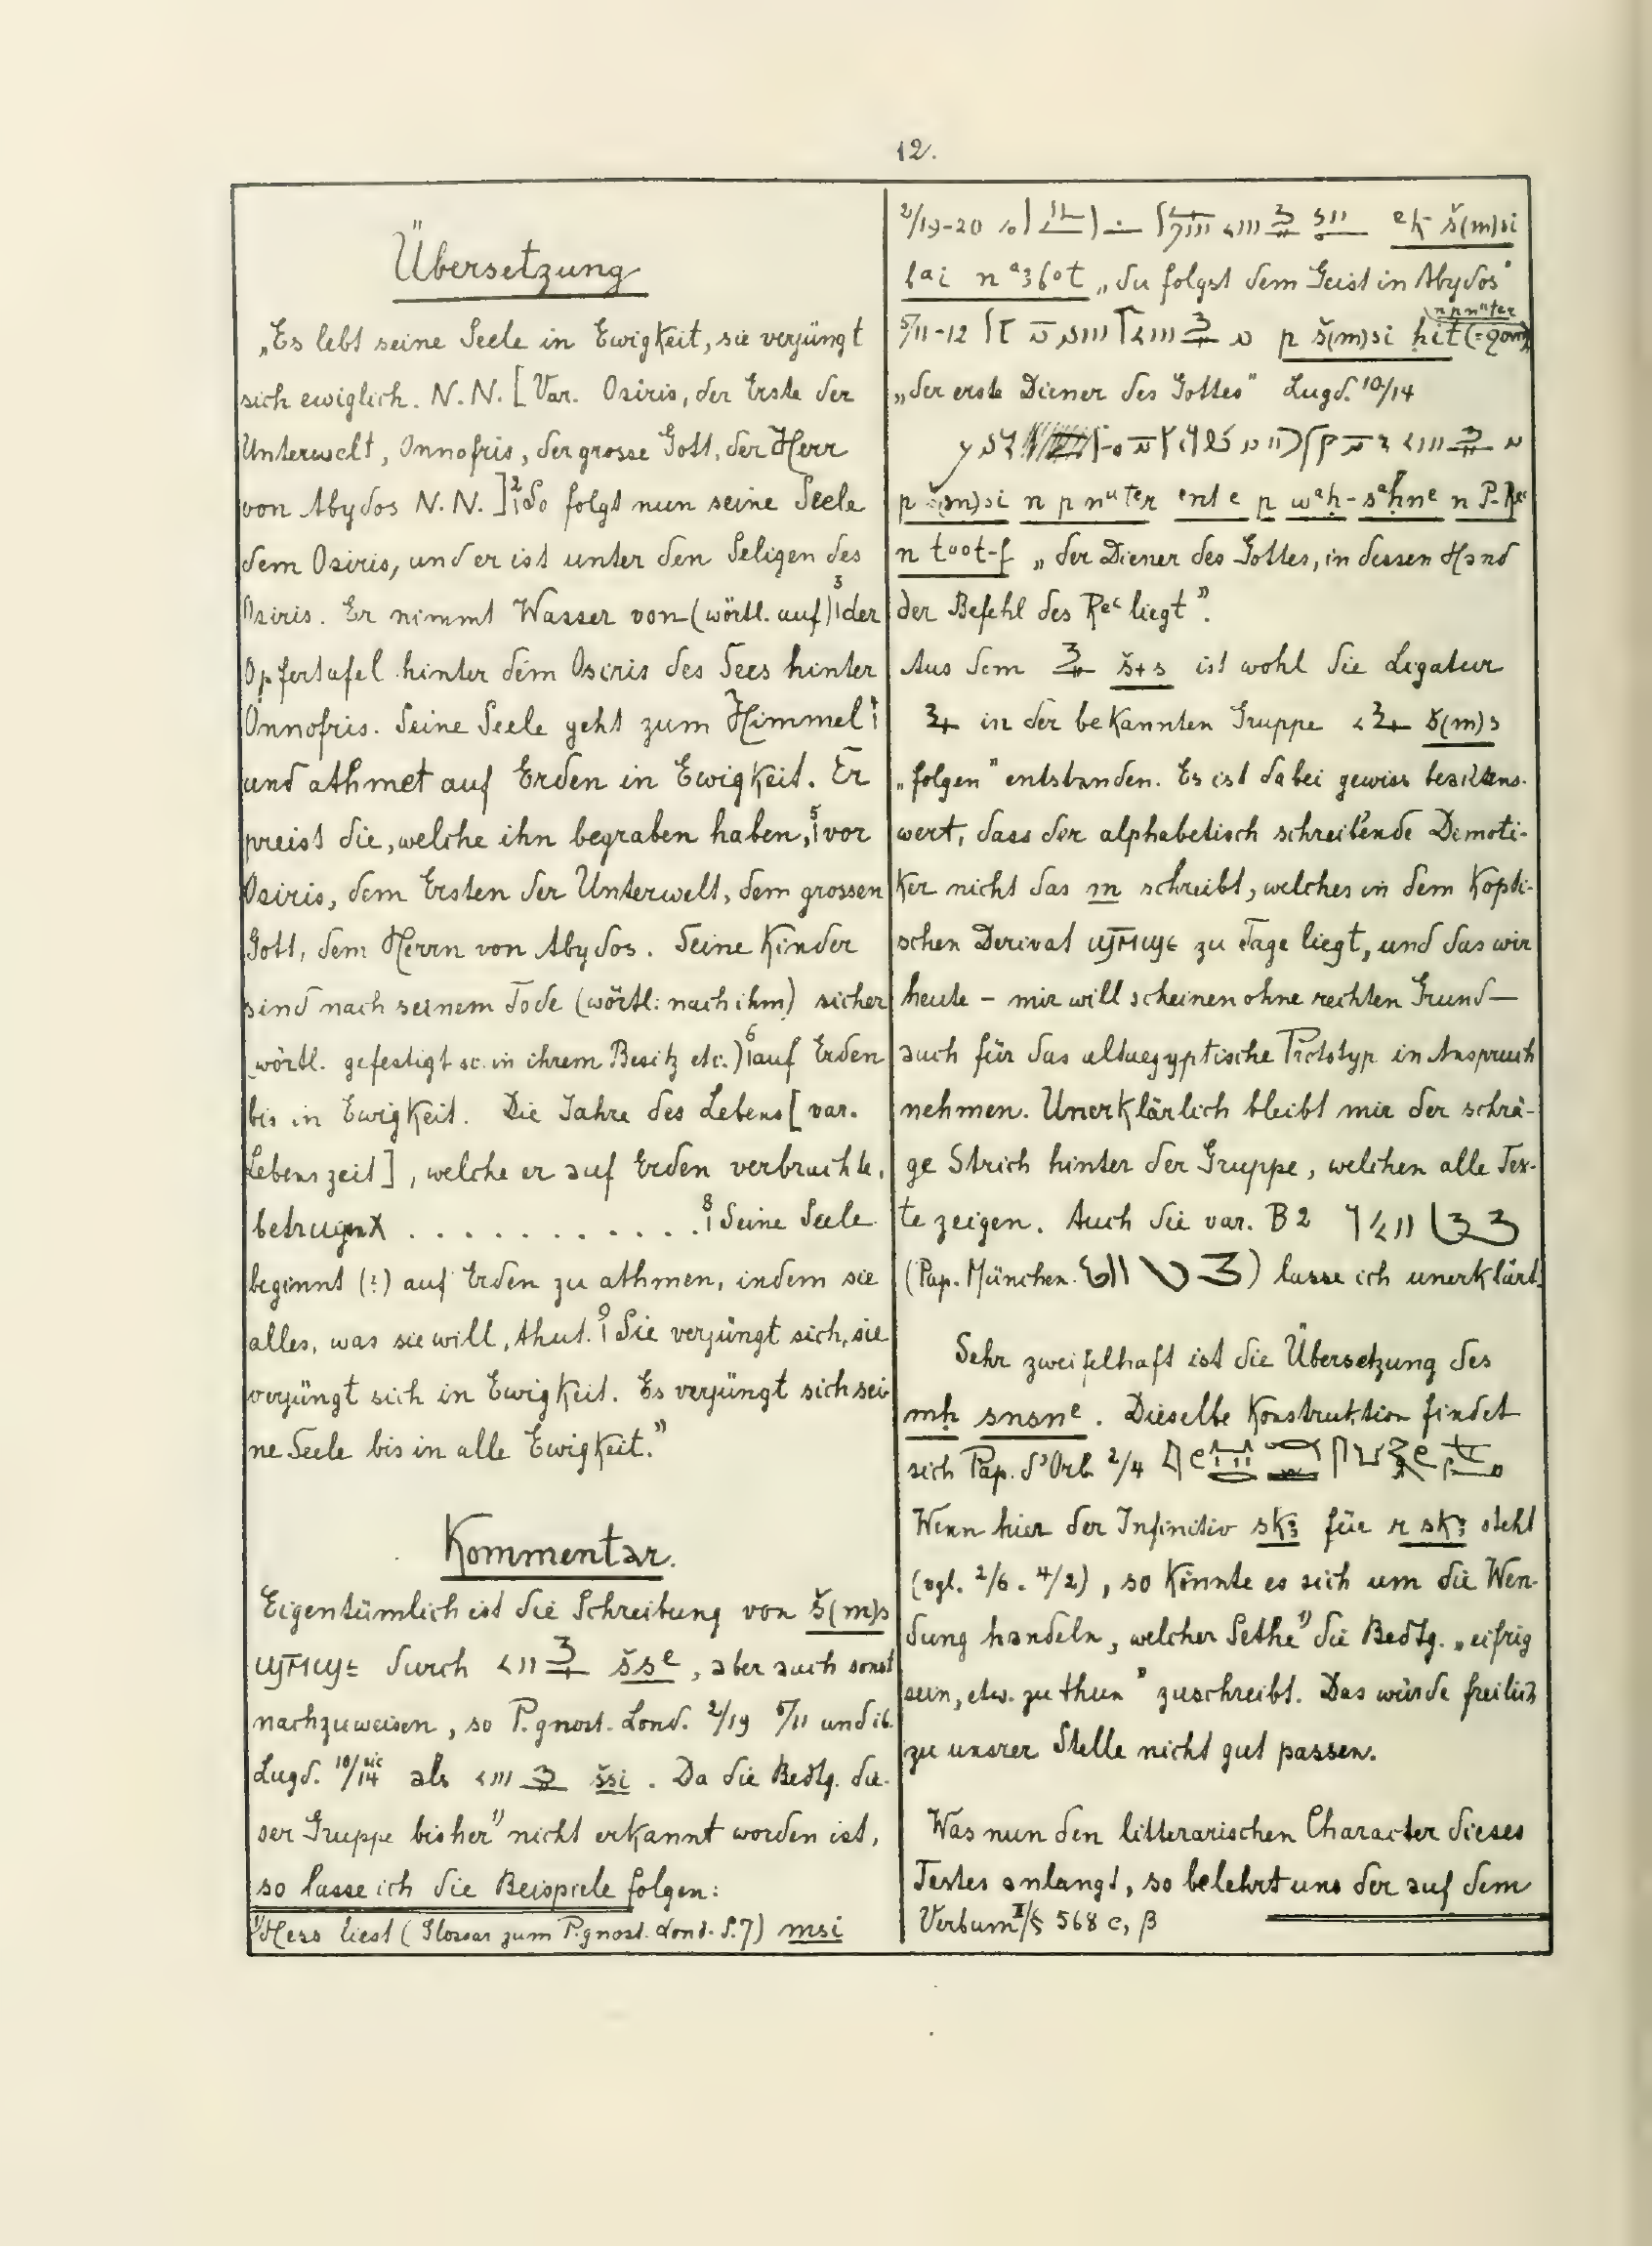 12.
Übersetzung
„Es lebt seine Seele in Ewigkeit, sie verjüngt
sich ewiglich. N.N. [Var. Osiris, der Erste der
Unterwelt, Onnofris, der grosse Gott, der Herr
von Abydos N.N.] |² So folgt nun seine Seele
dem Osiris, und er ist unter den Seligen des
Osiris. Er nimmt Wasser von (wörtl. auf) |³ der
Opfertafel hinter dem Osiris des Sees hinter
Onnofris. Seine Seele geht zum Himmel |⁴
und athmet auf Erden in Ewigkeit. Er
preist die, welche ihn begraben haben, |⁵ vor
Osiris, dem Ersten der Unterwelt, dem grossen
Gott, dem Herrn von Abydos. Seine Kinder
sind nach seinem Tode (wörtl: nach ihm) sicher
(wörtl. gefestigt sc. in ihrem Besitz etc.) |⁶ auf Erden
bis in Ewigkeit. Die Jahre des Lebens [var.
Lebenszeit], welche er auf Erden verbrachte,
betrugen . . . . . . . . . . . . |⁸ Seine Seele
beginnt (?) auf Erden zu athmen, indem sie
alles, was sie will, thut. |⁹ Sie verjüngt sich, sie
verjüngt sich in Ewigkeit. Es verjüngt sich sei-
ne Seele bis in alle Ewigkeit."
Kommentar.
Eigentümlich ist die Schreibung von š(m)s
ϣⲙ̅ϣⲉ durch šsᵉ, aber auch sonst
nachzuweisen, so P. gnost. Lond. 2/19 5/11 und ib.
Lugd. 10/14 sic als šsi. Da die Bedtg. die-
ser Gruppe bisher ¹⁾ nicht erkannt worden ist,
so lasse ich die Beispiele folgen:
¹⁾ Hess liest (Glossar zum P. gnost. Lond. S. 7) msi
2/19-20 eḳ š(m)si
bai n ᵃ3bot „du folgst dem Geist in Abydos"
5/11-12 p š(m)si ḥit n p nᵘter
„der erste Diener des Gottes" Lugd. 10/14
p š(m)si n p nᵘtᵉr ent e p wᵃḥ-sᵃḥnᵉ n P-Reᶜ
n toot-f „der Diener des Gottes, in dessen Hand
der Befehl des Reᶜ liegt".
Aus dem š+s ist wohl die Ligatur
in der bekannten Gruppe š(m)s
„folgen" entstanden. Es ist dabei gewiss beachtens-
wert, dass der alphabetisch schreibende Demoti-
ker nicht das m schreibt, welches in dem kopti-
schen Derivat ϣⲙ̅ϣⲉ zu Tage liegt, und das wir
heute – mir will scheinen ohne rechten Grund –
auch für das altaegyptische Prototyp in Anspruch
nehmen. Unerklärlich bleibt mir der schrä-
ge Strich hinter der Gruppe, welchen alle Tex-
te zeigen. Auch die var. B 2
(Pap. München ) lasse ich unerklärt.
Sehr zweifelhaft ist die Übersetzung des
mḥ snsnᵉ. Dieselbe Konstruktion findet
sich Pap. d'Orb. 2/4
Wenn hier der Infinitiv sk3 für r sk3 steht
(vgl. 2/6. 4/2), so könnte es sich um die Wen-
dung handeln, welcher Sethe ¹⁾ die Bedtg. „eifrig
sein, etw. zu thun" zuschreibt. Das würde freilich
zu unsrer Stelle nicht gut passen.
Was nun den litterarischen Character dieses
Textes anlangt, so belehrt uns der auf dem
Verbum II/§ 568 c, β